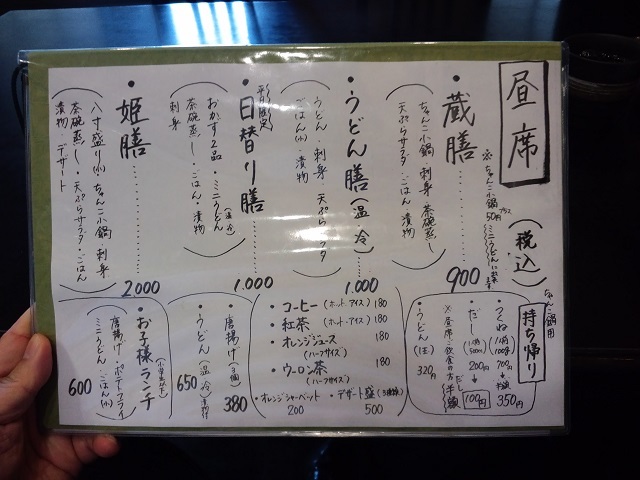 昼席
(税込)
・蔵膳 ………… 900
※ちゃんこ小鍋
50円プラス
ミニうどんに
ちゃんこ小鍋・刺身・茶碗蒸し
天ぷらサラダ・ごはん・漬物
・うどん膳(温・冷) …… 1.000
うどん・刺身・天ぷらサラダ
ごはん(小)・漬物
・日替り膳 ………… 1.000
平日限定
おかず2品・ミニうどん(温・冷)
茶碗蒸し・ごはん・漬物
刺身
・姫膳 ………… 2.000
八寸盛り・ちゃんこ小鍋・刺身
茶碗蒸し・天ぷらサラダ・ごはん
漬物・デザート
ちゃんこ鍋用
持ち帰り
・つくね
350円
・だし
(1角500cc)
200円
100円
※昼席ご飲食の方 だし半額
・うどん(1玉) 320円
・コーヒー(ホット・アイス) 180
・紅茶(ホット・アイス) 180
・オレンジジュース 180
(ハーフサイズ)
・ウーロン茶 180
(ハーフサイズ)
・オレンジシャーベット
200
・デザート盛(3種類)
500
・唐揚げ(3個) 380
・うどん(温・冷) 漬物付 650
・お子様ランチ
(小学生以下)
唐揚げ・ポテトフライ
ミニうどん・ごはん(小)
600